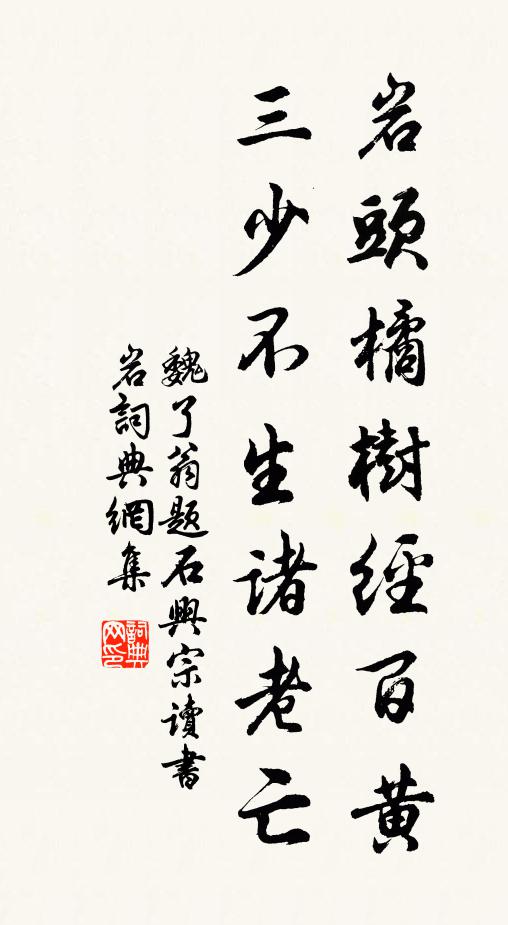 岩頭橘樹經百黄
三少不生諸老亡
魏了翁题石興宗讀書
岩詞典網集
詞典网印